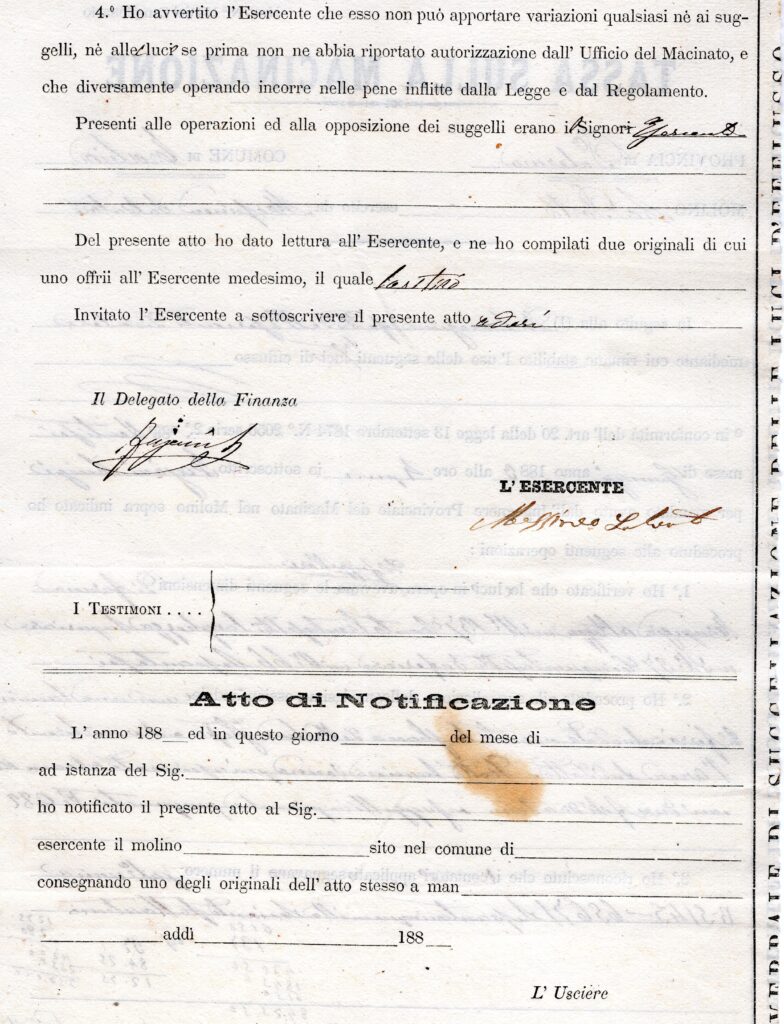 4.° Ho avvertito l'Esercente che esso non può apportare variazioni qualsiasi nè ai sug-
gelli, nè alle luci se prima non ne abbia riportato autorizzazione dall' Ufficio del Macinato, e
che diversamente operando incorre nelle pene inflitte dalla Legge e dal Regolamento.
Presenti alle operazioni ed alla opposizione dei suggelli erano i Signori
Del presente atto ho dato lettura all' Esercente, e ne ho compilati due originali di cui
uno offrii all' Esercente medesimo, il quale
Invitato l'Esercente a sottoscrivere il presente atto aderì
Il Delegato della Finanza
L'ESERCENTE
I TESTIMONI ....
Atto di Notificazione
L' anno 188 ed in questo giorno del mese di
ad istanza del Sig.
ho notificato il presente atto al Sig.
esercente il molino sito nel comune di
consegnando uno degli originali dell' atto stesso a man
addì 188
L' Usciere